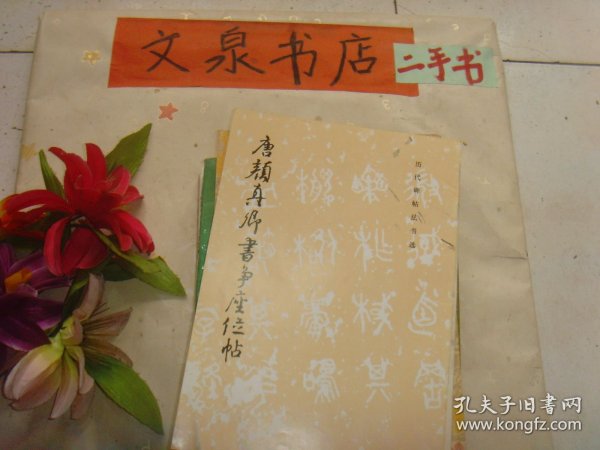 文泉书店
二手书
历代碑帖法书选
唐颜真卿書争座位帖
孔夫子旧书网
www.kongfz.com